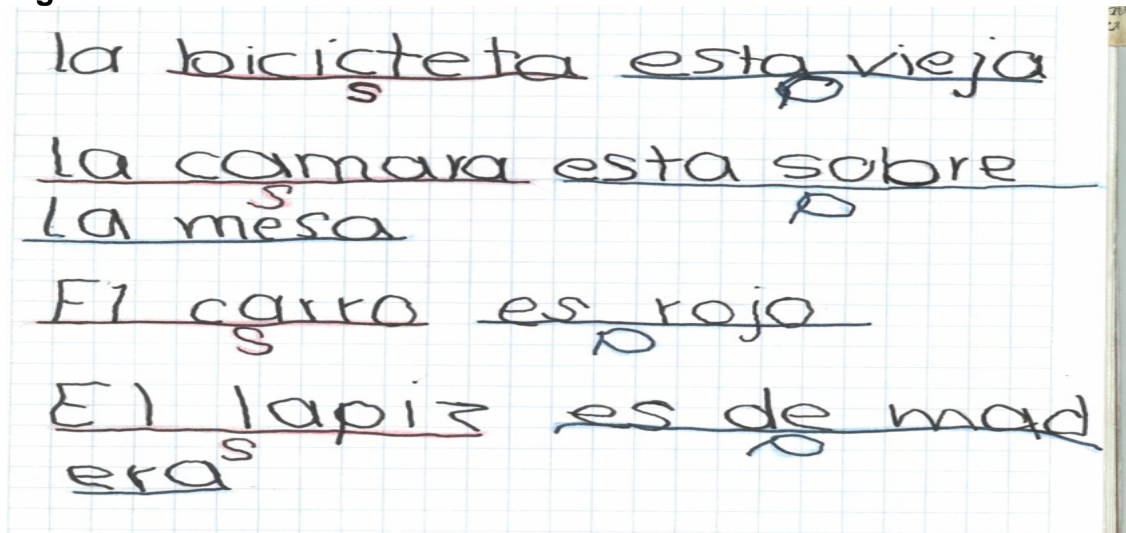 la bicicteta esta vieja
S P
la camara esta sobre
S P
la mesa
El carro es rojo
S P
El lapiz es de mad
S P
era